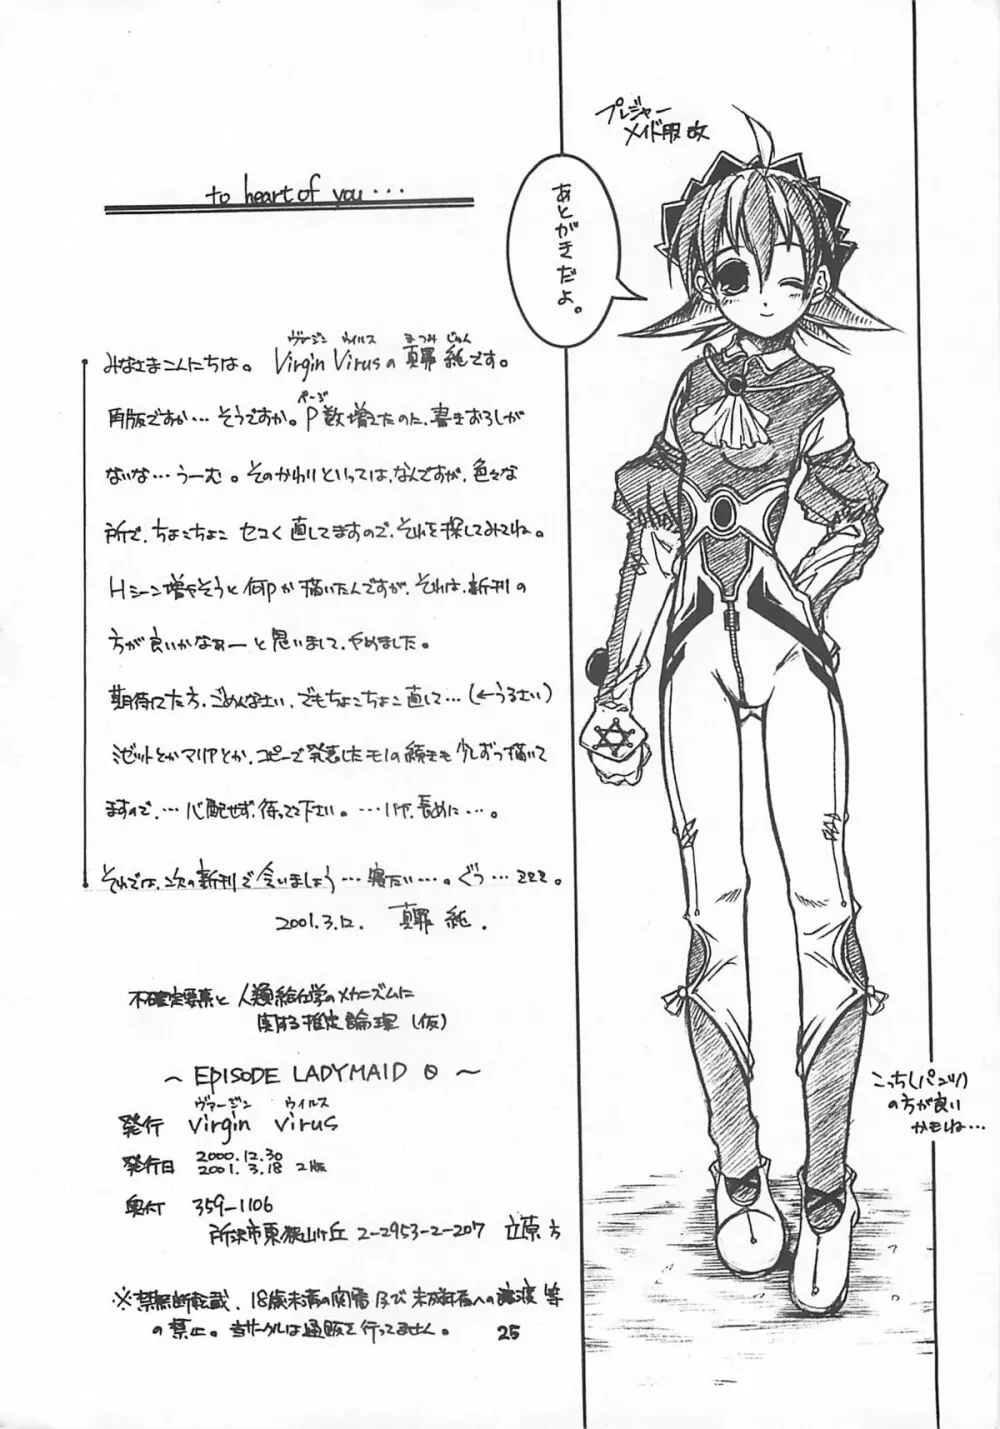 to heart of you...
プレジャー
メイド服 改
あとがきだよ。
ヴァージン ウイルス まつみ じゅん
みなさまこんにちは。Virgin Virusの真罪 純です。
ページ
再版ですか…そうですか。P数増えたのに、書きおろしが
ないな…うーむ。そのかわりといっては、なんですが、色々な
所で、ちょこちょこ セコく直してますので、それを探してみてね。
Hシーン増やそうと何Pか描いたんですが、それは、新刊の
方が良いかなぁーと思いまして、やめました。
期待してた方、ごめんなさい、でもちょこちょこ直して…(←うるさい)
ミゼットとかマリアとか、コピーで発表したモノの続きも少しずつ描いて
ますので、…心配せず、待ってて下さい。…いや、長めに…。
それでは、次の新刊で会いましょう…寝たい…。ぐぅ…zzz。
2001.3.12. 真罪 純.
不確定要素と人類給仕学のメカニズムに
関する推定論理(仮)
～ EPISODE LADYMAID 0 ～
ヴァージン ウイルス
発行 virgin virus
発行日 2000.12.30
2001.3.18 2版
奥付 359-1106
所沢市東狭山ヶ丘 2-2953-2-207 立原 方
※禁無断転載、18歳未満の閲覧及び未成年者への譲渡 等
の禁止。当サークルは通販を行ってません。
25
こっち(パンツ)
の方が良い
かもね…